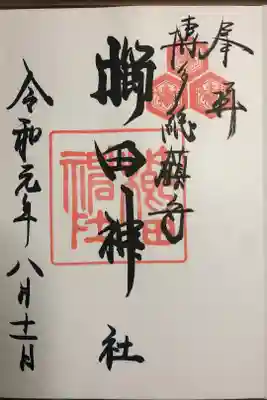 奉拝
博多総鎮守
櫛田神社
令和元年八月十一日
櫛田神社